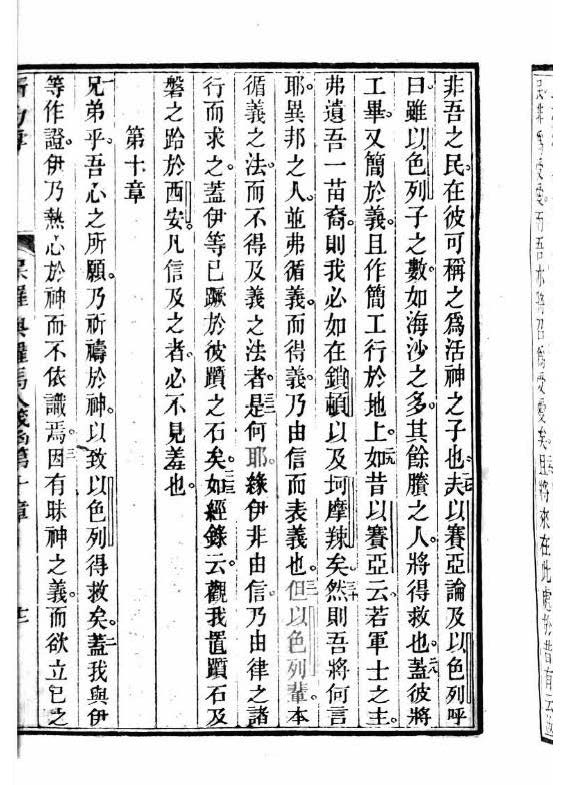 非吾之民在彼可稱之爲活神之子也夫以賽亞論及以色列呼
曰雖以色列子之數如海沙之多其餘賸之人將得救也蓋彼將
工畢又簡於義且作簡工行於地上如昔以賽亞云若軍士之主
弗遺吾一苗裔則我必如在鎖頓以及坷摩辣矣然則吾將何言
耶異邦之人並弗循義而得義乃由信而表義也但以色列輩本
循義之法而不得及義之法者是何耶緣伊非由信乃由律之諸
行而求之蓋伊等已蹶於彼躓之石矣如經錄云觀我置躓石及
磐之跲於西安凡信及之者必不見羞也
第十章
兄弟乎吾心之所願乃祈禱於神以致以色列得救矣蓋我與伊
等作證伊乃熱心於神而不依識焉因有昧神之義而欲立已之
羅馬人
第十章